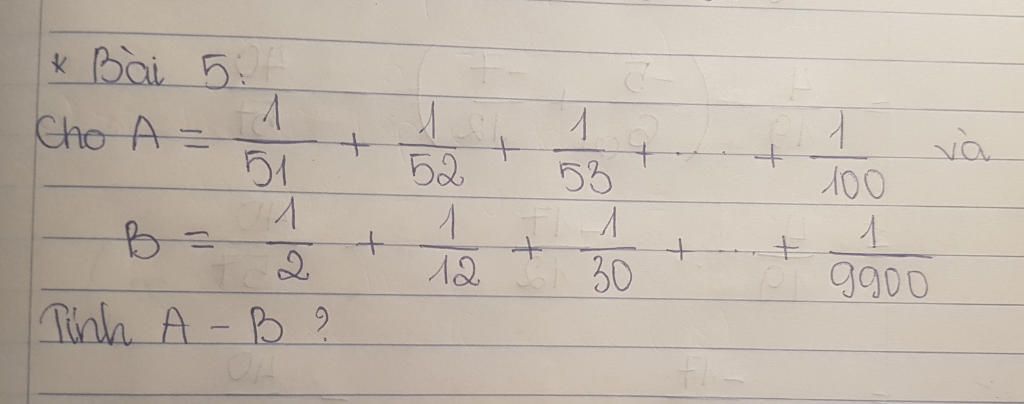 * Bài 5:
Cho A = 1/51 + 1/52 + 1/53 + ... + 1/100 và
B = 1/2 + 1/12 + 1/30 + ... + 1/9900
Tính A - B ?